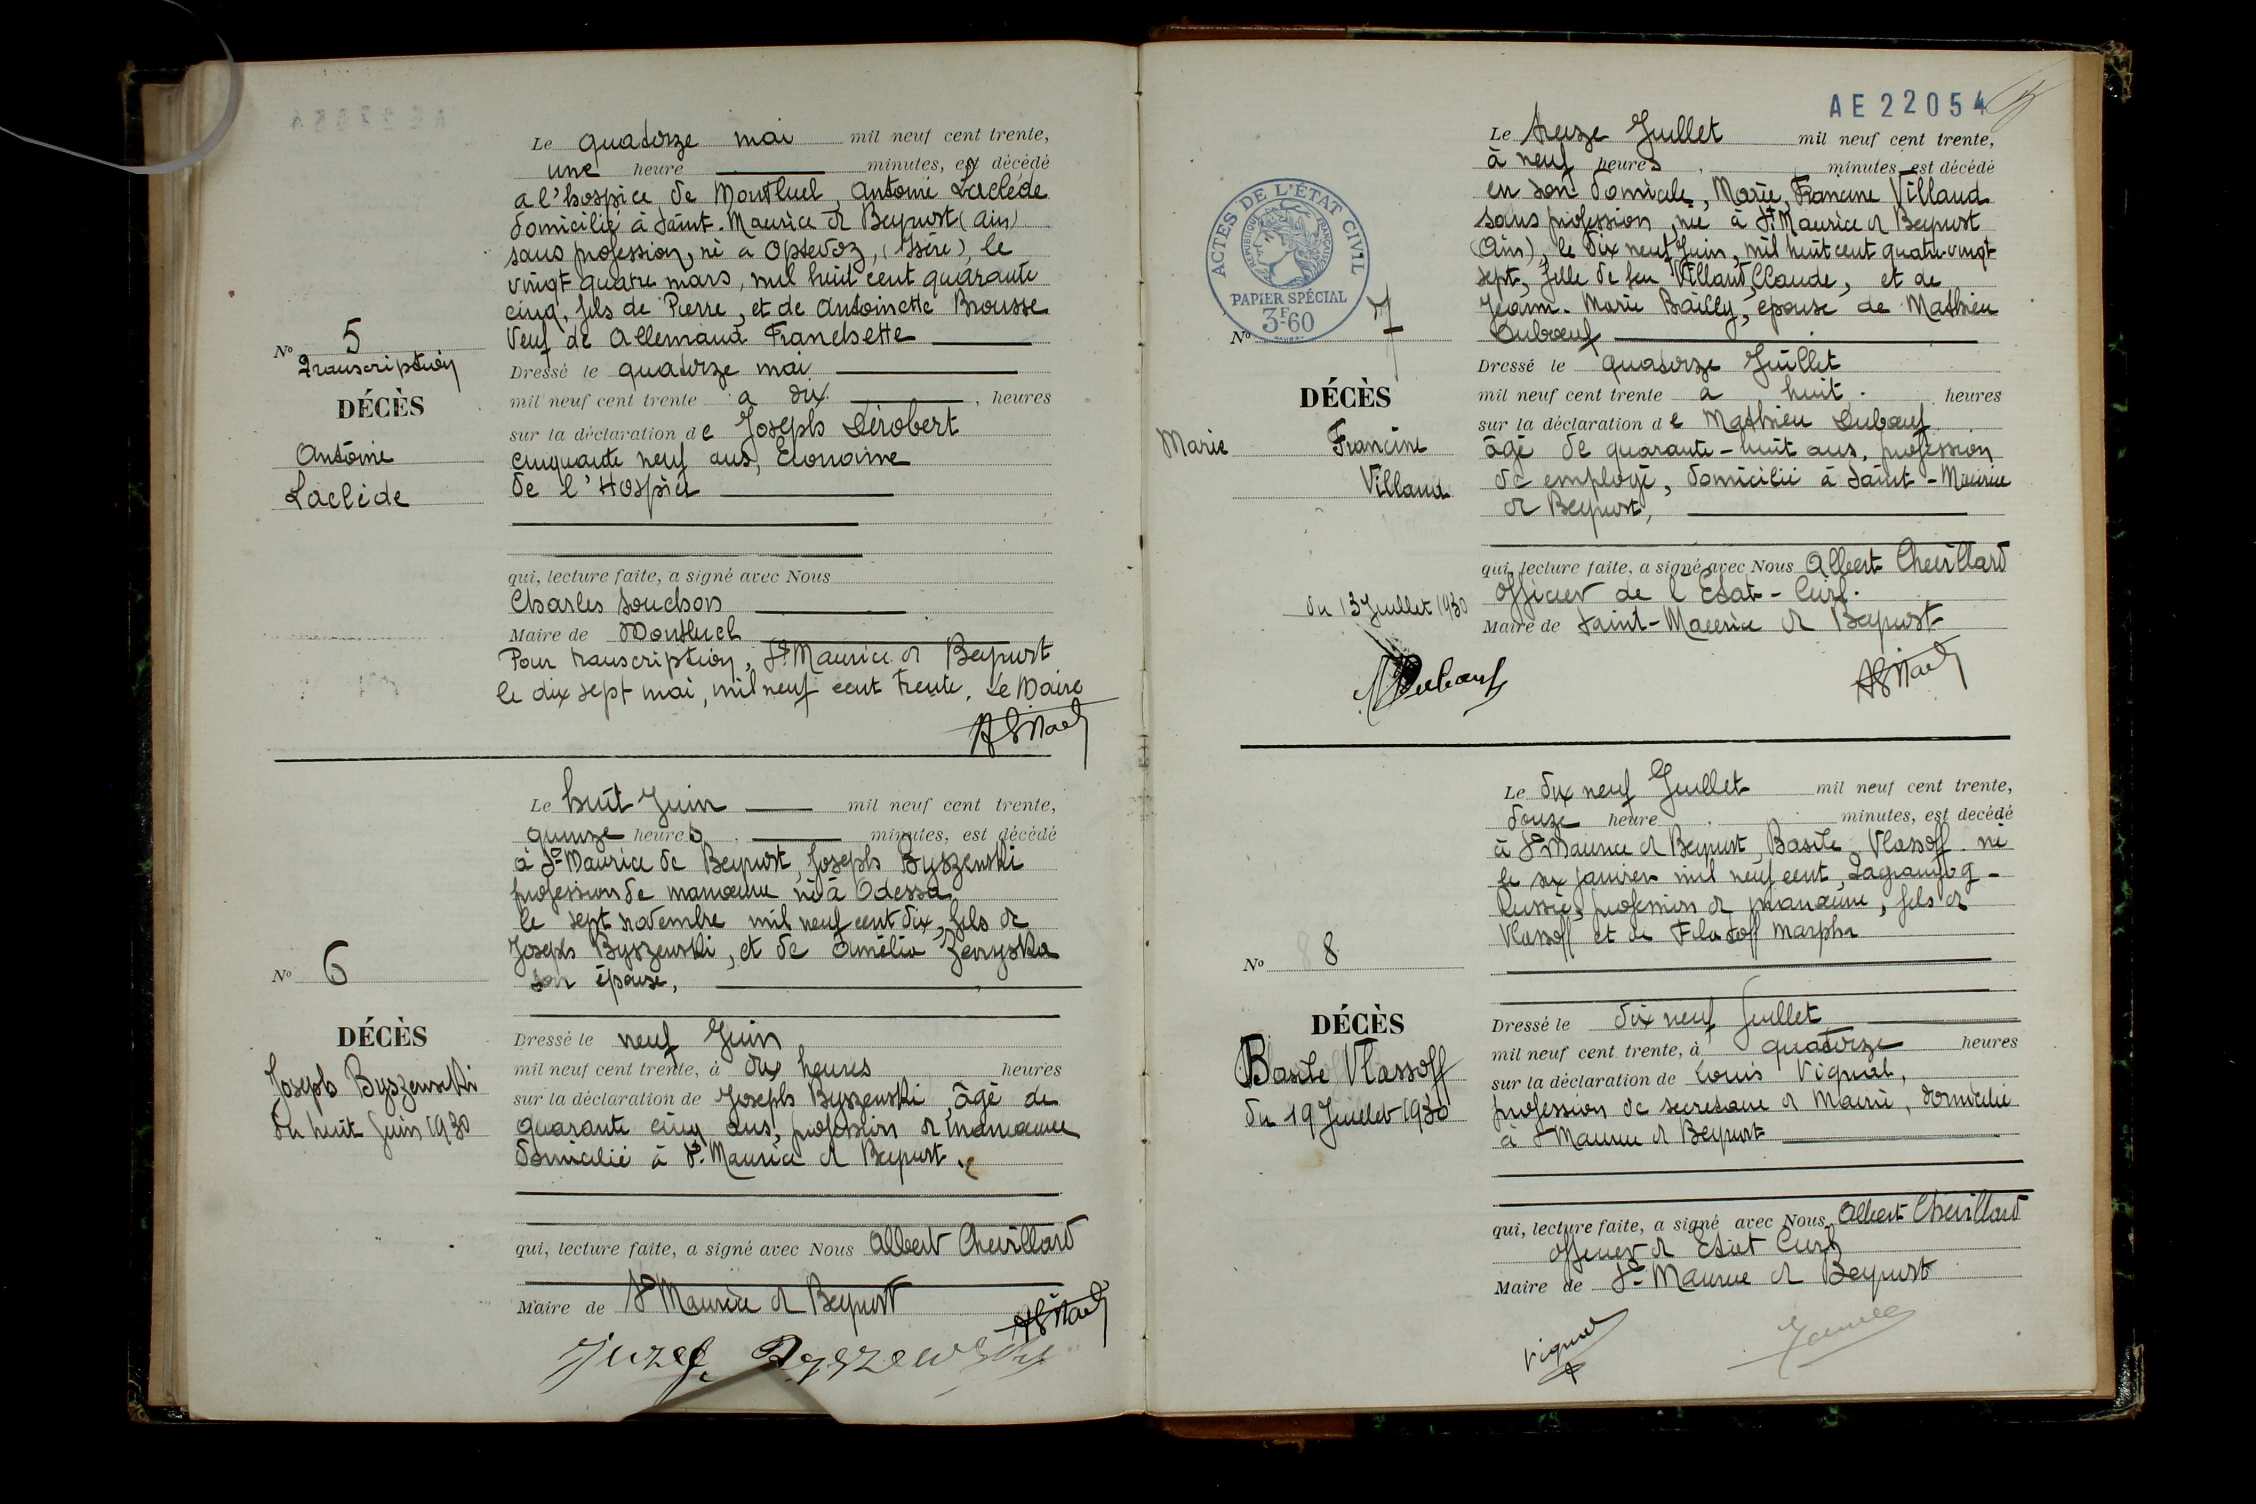 Le quatorze mai mil neuf cent trente,
une heure minutes, est décédé
a l'hospice de Montluel, Antoine Laclède
domicilié à Saint-Maurice de Beynost (Ain)
sans profession, né a Optevoz, (Isère), le
vingt quatre mars, mil huit cent quarante
cinq, fils de Pierre, et de Antoinette Brousse
Veuf de Allemand Franchette
No 5
Transcription
DÉCÈS
Antoine
Laclède
Dressé le quatorze mai
mil neuf cent trente a dix, heures
sur la déclaration de Joseph Dérobert
cinquante neuf ans, Econome
de l'Hospice
qui, lecture faite, a signé avec Nous
Charles Souchon
Maire de Montluel
Pour transcription, St Maurice de Beynost
le dix sept mai, mil neuf cent trente, Le Maire
Le huit Juin mil neuf cent trente,
quinze heures minutes, est décédé
à St Maurice de Beynost, Joseph Byszenski
profession de manœuvre né à Odessa
le sept novembre mil neuf cent dix, fils de
Joseph Byszewski, et de Amélia
son épouse,
No 6
DÉCÈS
Joseph Byszenscki
du huit Juin 1930
Dressé le neuf Juin
mil neuf cent trente, à dix heures heures
sur la déclaration de Joseph Byszenski âgé de
quarante cinq ans, profession de manœuvre
domicilié à St. Maurice de Beynost.
qui, lecture faite, a signé avec Nous Albert Chevillard
Maire de St Maurice de Beynost
Juzef Byszewski
AE22054
Le treize Juillet mil neuf cent trente,
à neuf heures minutes est décédé
en son domicile, Marie, Francine Villand
sans profession, née à St Maurice de Beynost
(Ain), le dix neuf Juin, mil huit cent quatre-vingt
sept, fille de feu Villand, Claude, et de
Jeanne-Marie Bailly, épouse de Mathieu
Dubœuf
ACTES DE L'ÉTAT CIVIL
RÉPUBLIQUE FRANÇAISE
PAPIER SPÉCIAL
3F60
No 7
DÉCÈS
Marie Francine
Villand
du 13 Juillet 1930
Dressé le quatorze Juillet
mil neuf cent trente a huit heures
sur la déclaration de Mathieu Dubœuf
âgé de quarante-huit ans, profession
de employé, domicilié à Saint-Maurice
de Beynost,
qui, lecture faite, a signé avec Nous Albert Chevillard
officier de l'Etat-Civil.
Maire de Saint-Maurice de Beynost
Dubœuf
Le dix neuf Juillet mil neuf cent trente,
douze heure minutes, est décédé
à St Maurice de Beynost, Basile Vlassoff né
le six janvier mil neuf cent,
Russie, profession de manœuvre, fils de
Vlassoff et de Filatoff Marpha
No 8
DÉCÈS
Basile Vlassoff
du 19 Juillet 1930
Dressé le dix neuf Juillet
mil neuf cent trente, à quatorze heures
sur la déclaration de Louis Vignat,
profession de secretaire de Mairie, domicilié
à St Maurice de Beynost
qui, lecture faite, a signé avec Nous Albert Chevillard
officier de Etat Civil
Maire de St Maurice de Beynost